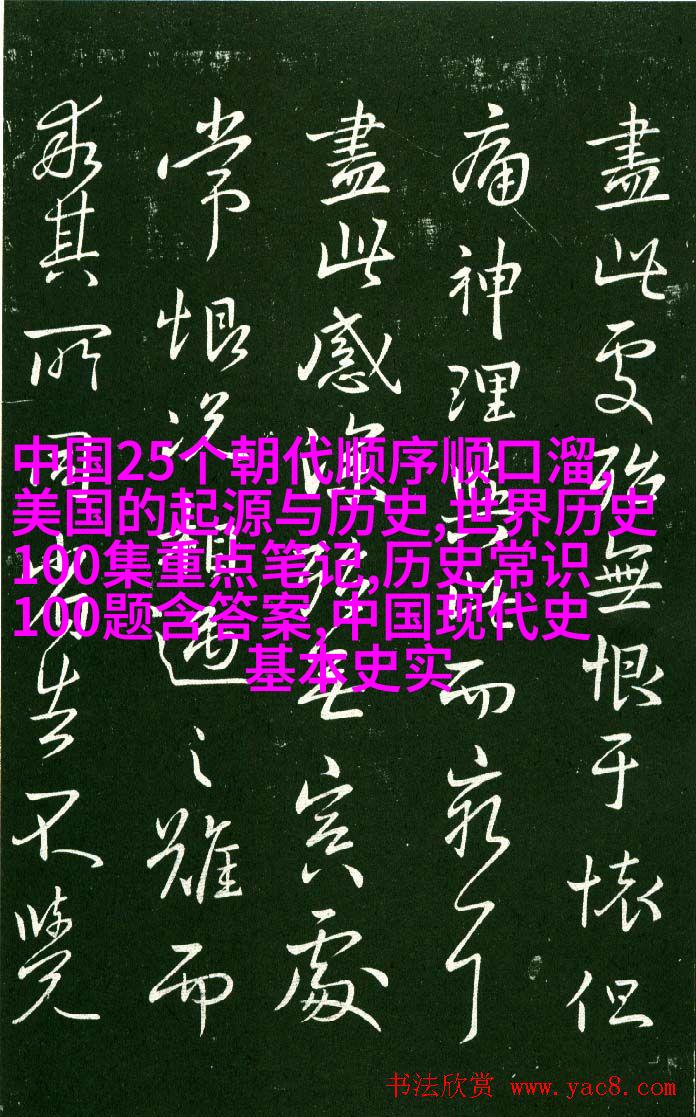 中国25个朝代顺序顺口溜,
美国的起源与历史,世界历史
100集重点笔记,历史常识
100题含答案,中国现代史
基本史实
盡此殆無恨于懷但
痛神理而
盡此感冥處
常恨遇之雖而
其所不覺
书法欣赏 www.yac8.com